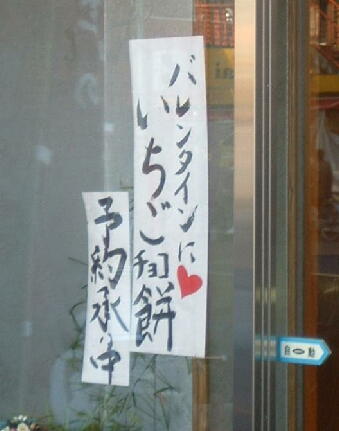 バレンタインに
いちごチョコ餅
予約承り中
自動